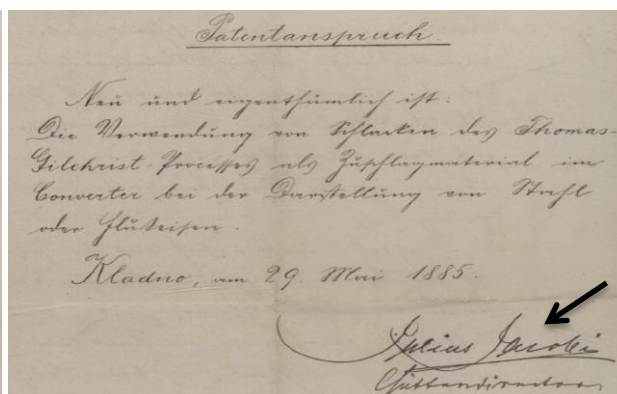 Patentanspruch.
Neu und eigenthümlich ist:
Die Verwendung von Schlacken des Thomas-
Gilchrist-Processes als Zuschlagmaterial im
Converter bei der Darstellung von Stahl
oder Flußeisen.
Kladno, am 29. Mai 1885.
Julius Jacobi
Hüttendirector